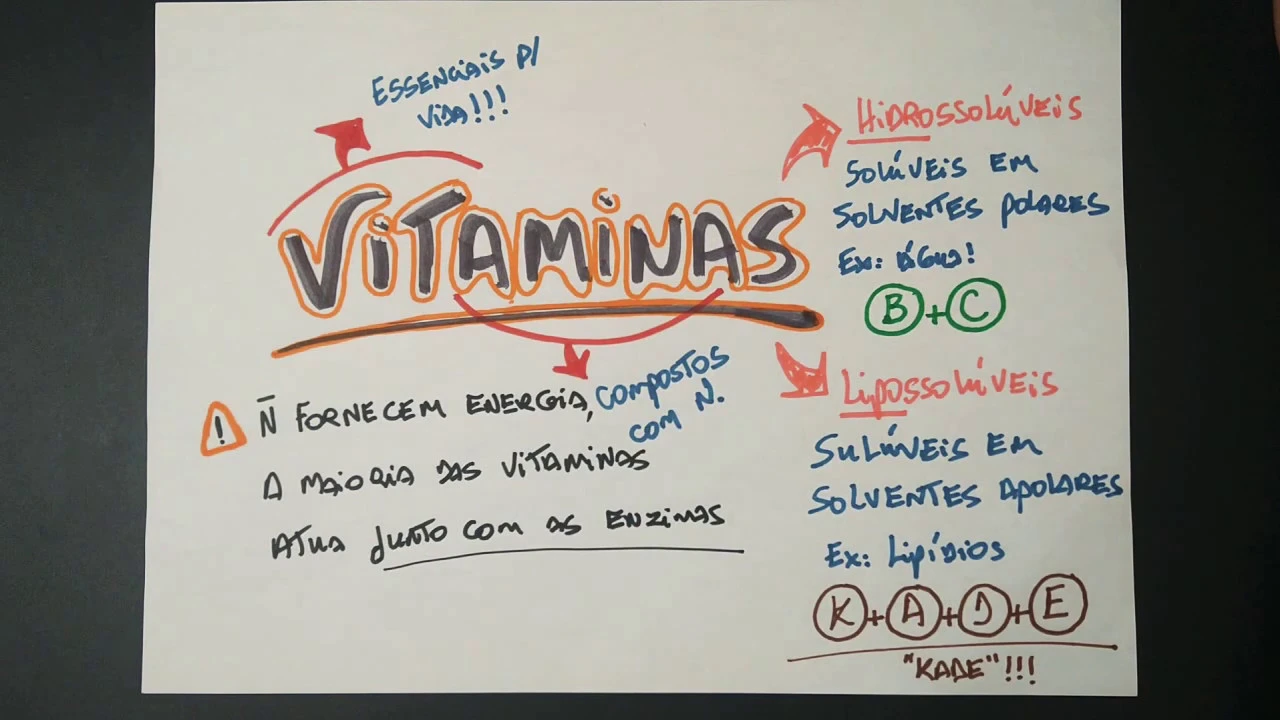 ESSENCIAIS P/
VIDA!!!
VITAMINAS
COMPOSTOS
COM N.
! N̄ FORNECEM ENERGIA,
A MAIORIA DAS VITAMINAS
ATUA JUNTO COM AS ENZIMAS
HIDROSSOLÚVEIS
SOLÚVEIS EM
SOLVENTES POLARES
EX: ÁGUA!
B + C
LIPOSSOLÚVEIS
SULÚVEIS EM
SOLVENTES APOLARES
EX: LIPÍDIOS
K + A + D + E
"KADE"!!!